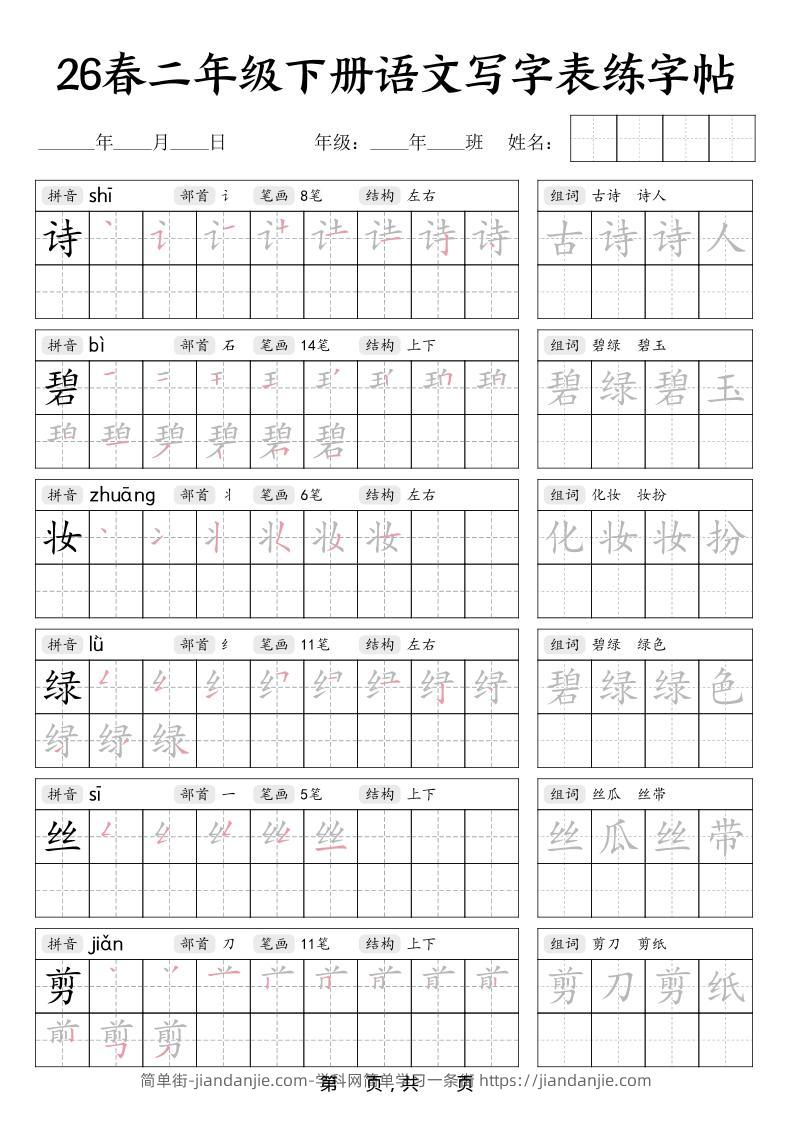 26春二年级下册语文写字表练字帖
______年____月____日 年级：____年____班 姓名：
拼音 shī 部首 讠 笔画 8笔 结构 左右 组词 古诗 诗人
诗 古诗诗人
拼音 bì 部首 石 笔画 14笔 结构 上下 组词 碧绿 碧玉
碧 碧绿碧玉
拼音 zhuāng 部首 丬 笔画 6笔 结构 左右 组词 化妆 妆扮
妆 化妆妆扮
拼音 lǜ 部首 纟 笔画 11笔 结构 左右 组词 碧绿 绿色
绿 碧绿绿色
拼音 sī 部首 一 笔画 5笔 结构 上下 组词 丝瓜 丝带
丝 丝瓜丝带
拼音 jiǎn 部首 刀 笔画 11笔 结构 上下 组词 剪刀 剪纸
剪 剪刀剪纸
简单街-jiandanjie.com-学科网简单学习一条街 https://jiandanjie.com
第 页，共 页